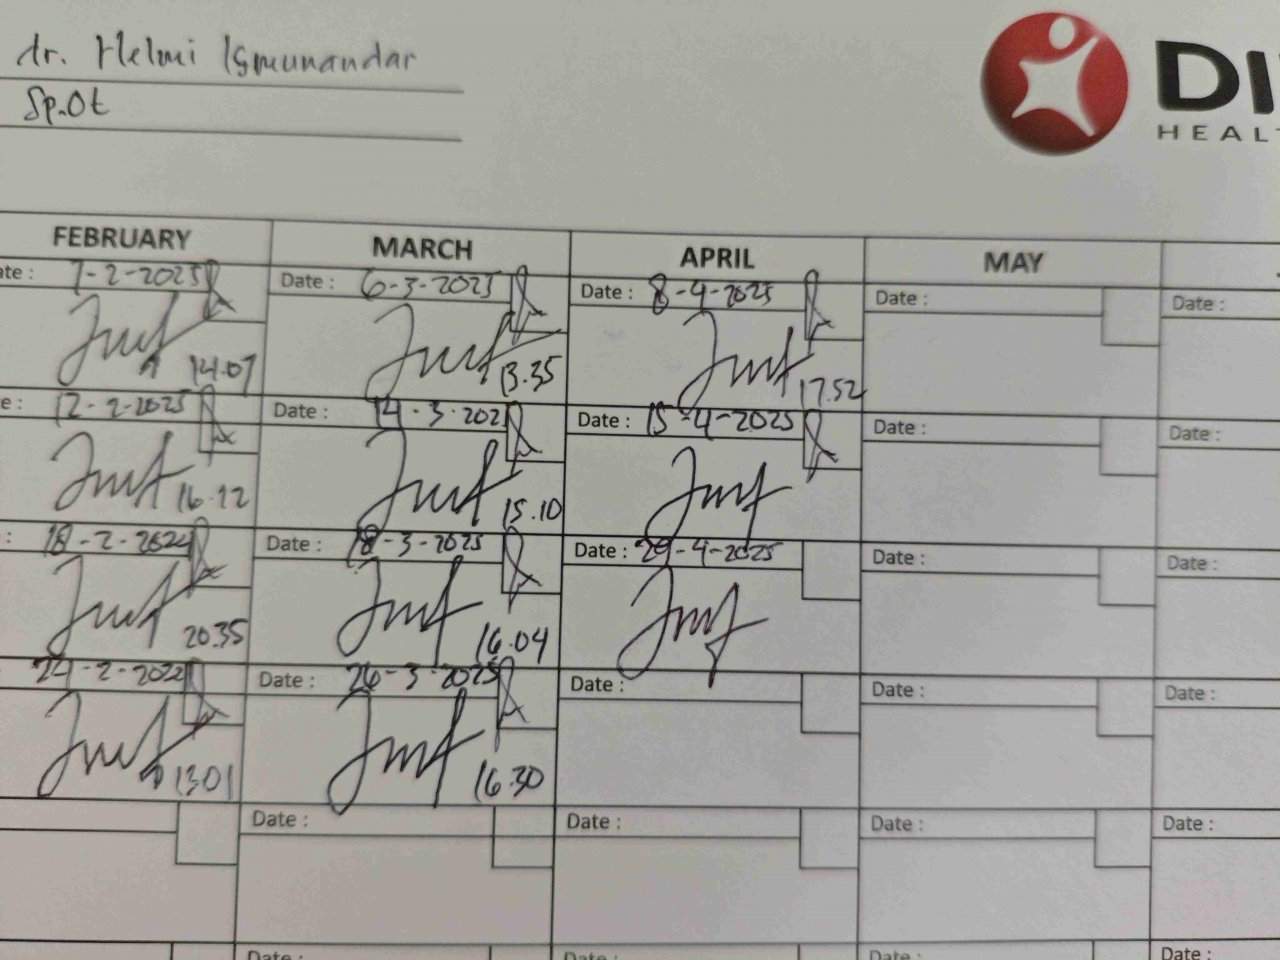 dr. Helmi Ismunandar
Sp.Ot
DI
HEAL
FEBRUARY MARCH APRIL MAY
ate : 7-2-2025 Date : 6-3-2025 Date : 8-4-2025 Date : Date :
14.07 13.35 17.52
e : 12-2-2025 Date : 14-3-202 Date : 15-4-2025 Date : Date :
16.12 15.10
: 18-2-202 Date : 18-3-2025 Date : 29-4-2025 Date : Date :
20.35 16.04
-2-202 Date : 26-3-2025 Date : Date : Date :
13.01 16.30
Date : Date : Date : Date :
Date : Date : Date : Date :